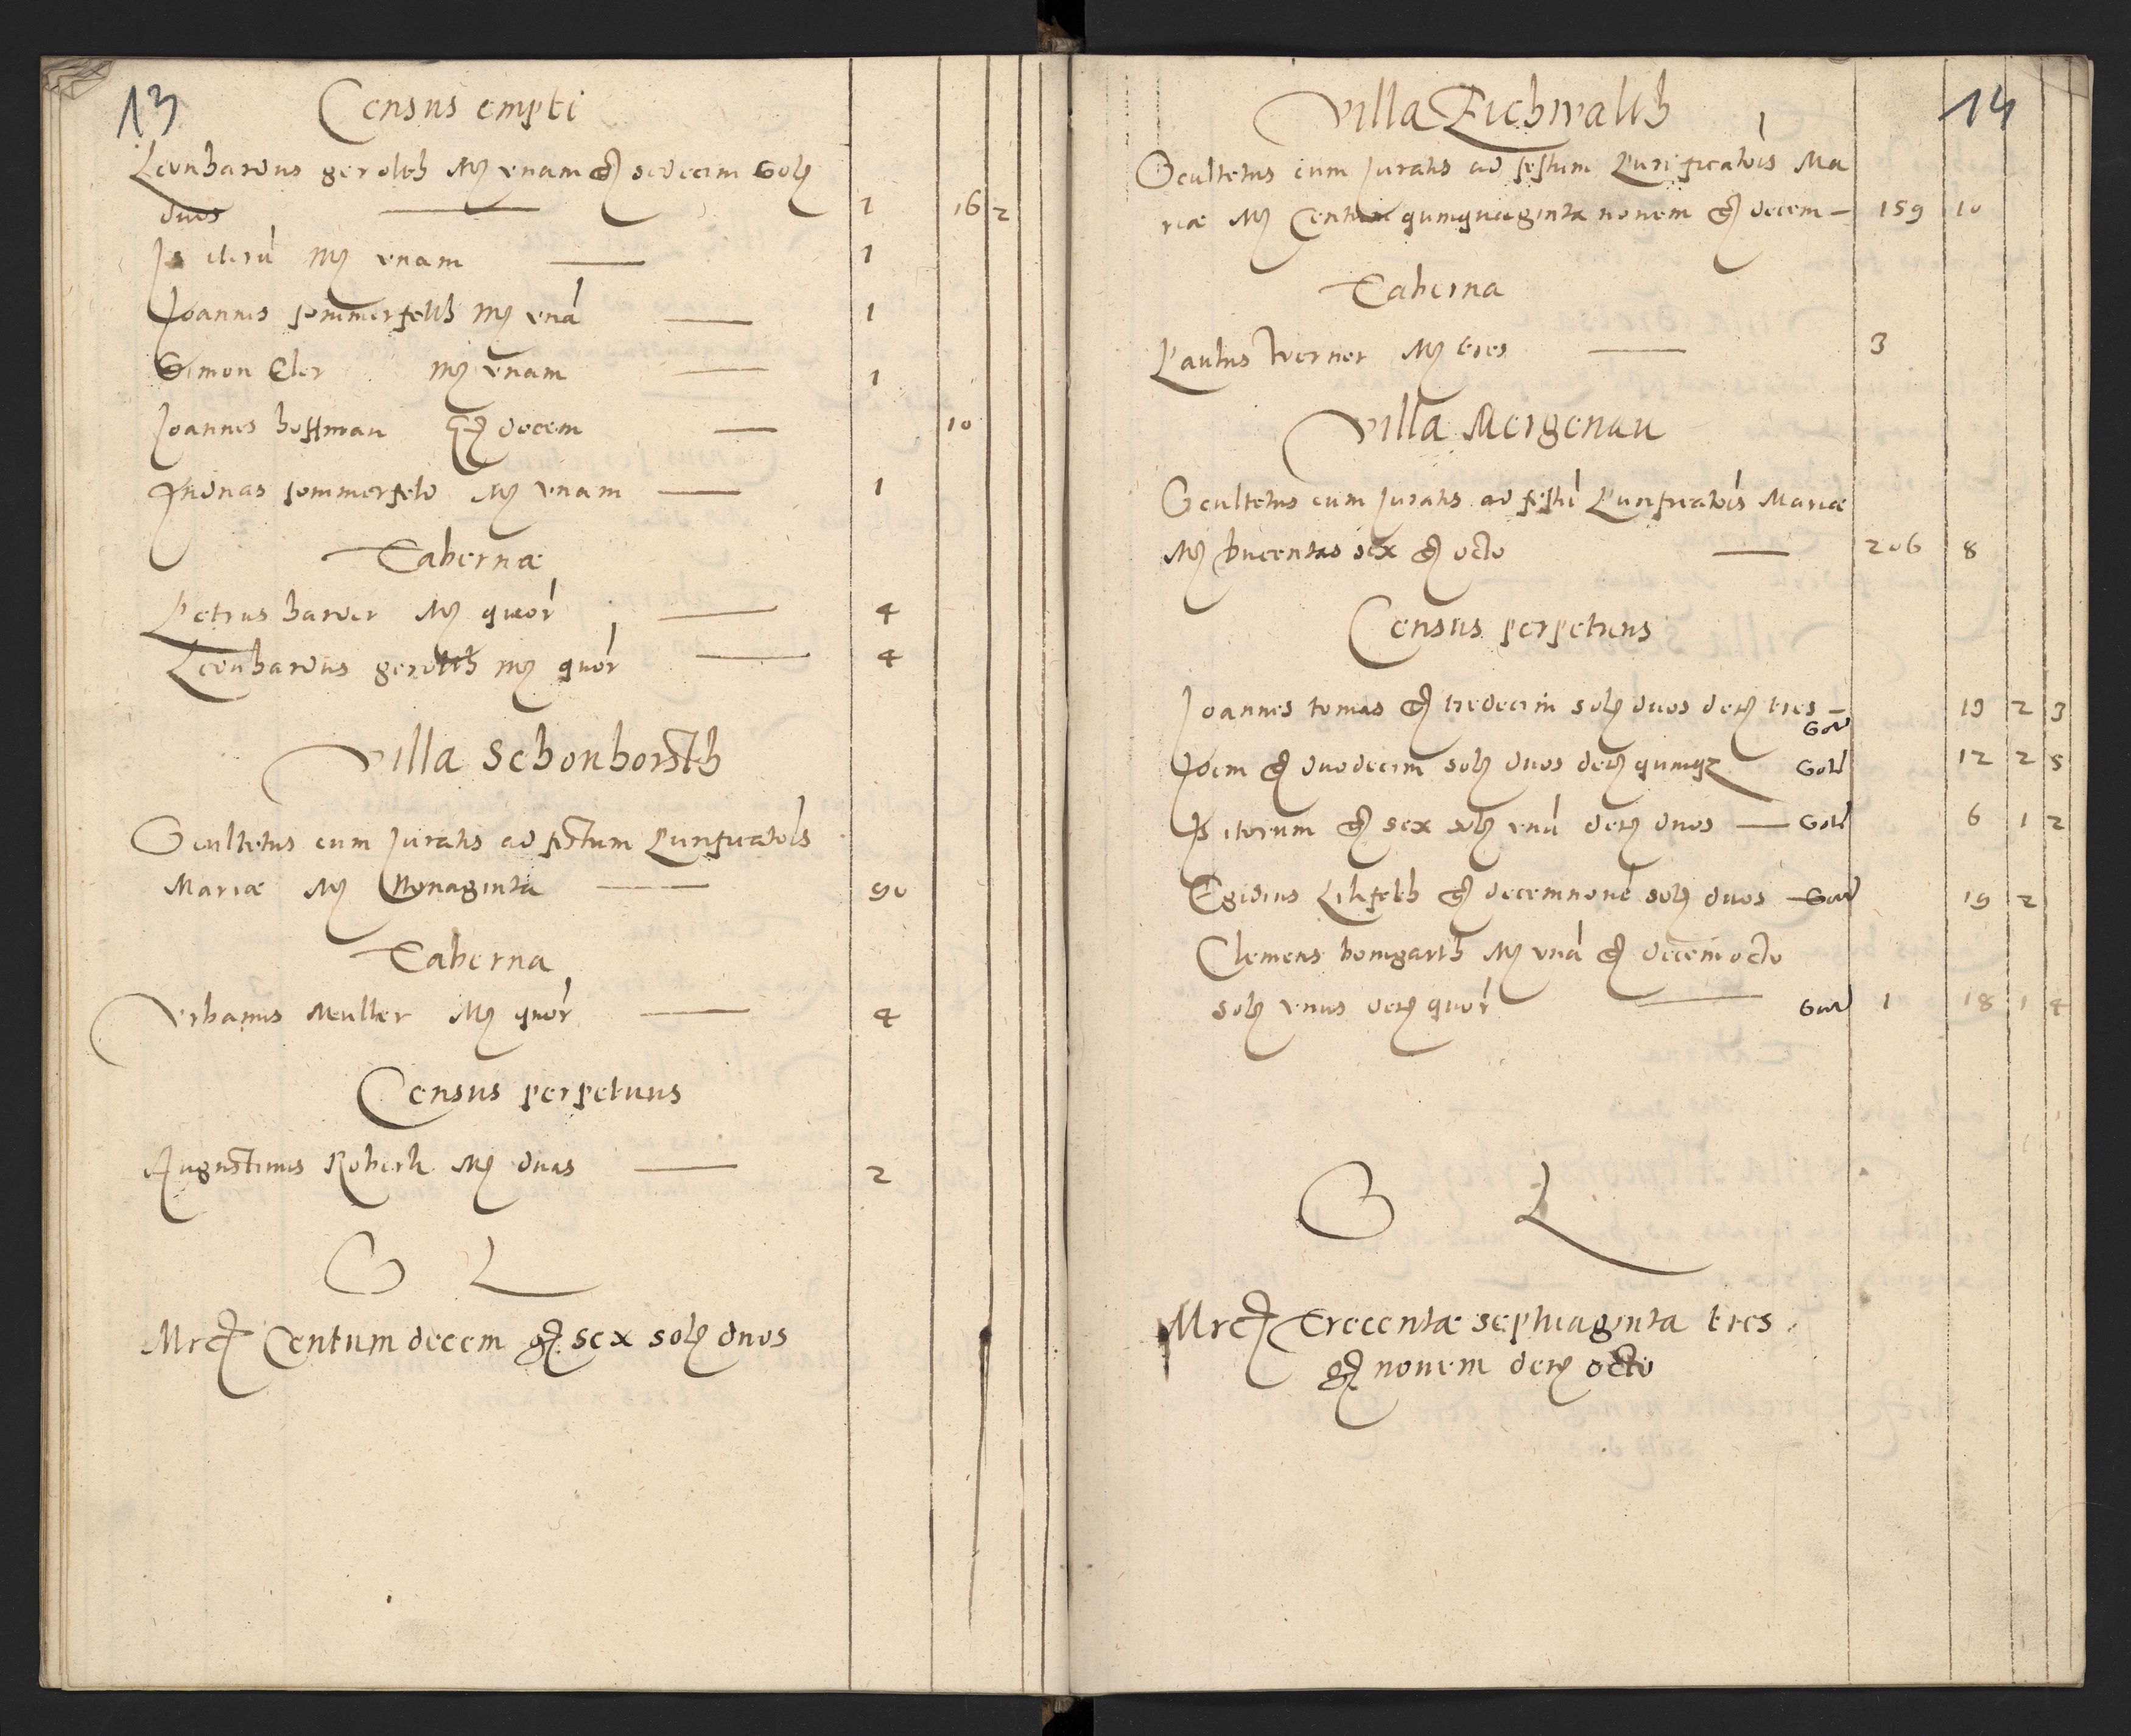 13
Census empti
Leonhardus gerolth Mꝫ vnam gꝫ sedecim Solꝫ
duos 1 16 2
Is iterū Mꝫ vnam 1
Joannes sommerfelth Mꝫ vnā 1
Simon Eler Mꝫ vnam 1
Joannes hoffman gꝫ decem 10
sommerfeld Mꝫ vnam 1
Tabernæ
Petrus harder Mꝫ quor 4
Leonhardus gerolth Mꝫ quor 4
Villa Schonborsth
Scultetus cum Juratis ad festum Purificatōis
Mariæ Mꝫ Nonaginta 90
Taberna
Vrbanus Meuller Mꝫ quor 4
Census perpetuus
Augustinus Mꝫ duas 2
S L
Mrc Centum decem gꝫ sex solꝫ duos
14
Villa Eichwalth
Scultetus cum Juratis ad festum Purificatōis Ma
riæ Mꝫ Centum quinquaginta nonem gꝫ decem 159 10
Taberna
Paulus Werner Mꝫ tres 3
Villa Mergenau
Scultetus cum Juratis ad festū Purificatōis Mariæ
Mꝫ Ducentas sex gꝫ octo 206 8
Census perpetuus
Joannes tomas gꝫ tredecim solꝫ duos denꝫ tres 13 2 3
Idem gꝫ duodecim solꝫ duos denꝫ quinqꝫ 12 2 5
Is iterum gꝫ sex solꝫ vnū denꝫ duos 6 1 2
Egidius Lilifelth gꝫ decemnonē solꝫ duos 19 2
Clemens bomgarth Mꝫ vnā gꝫ decemocto
solꝫ vnus denꝫ quor 1 18 1 4
S L
Mrc Trecentæ septuaginta tres
gꝫ nonem denꝫ octo